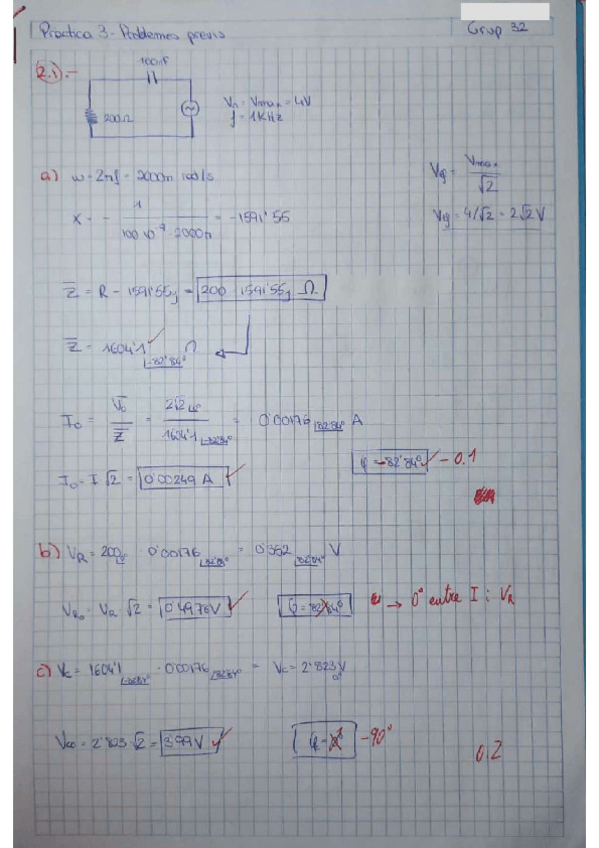 Practica 3 - Problemes previs
Grup 32
2.1).-
100nF
200Ω
Vn = Vmax = 4V
f = 1KHz
a) w = 2πf = 2000π rad/s
Vef = Vmax / √2
X = - 1 / 100·10⁻⁹·2000π = -1591'55
Vef = 4/√2 = 2√2 V
Z̅ = R - 1591'55j = 200 - 1591'55j Ω
Z̅ = 1604'1 |-82'84° Ω
I₀ = V̅₀ / Z̅ = 2√2 |0° / 1604'1 |-82'84° = 0'00176 |82'84° A
φ = -82'84° - 0.1
I₀ = I √2 = 0'00249 A
b) VR = 200 |0° · 0'00176 |82'84° = 0'352 |82'84° V
VR₀ = VR √2 = 0'4978V
φ = 82'84°
→ 0° entre I i VR
c) Vc = 1604'1 |-82'84° · 0'00176 |82'84° = Vc = 2'823 |0° V
Vc₀ = 2'823·√2 = 3'99V
φ = 0°
-90°
0.2